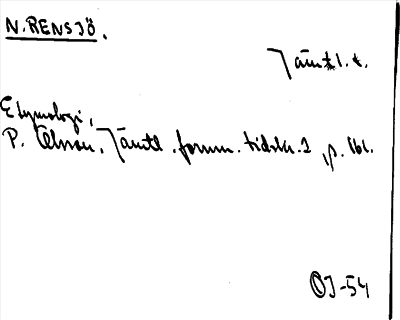 N. RENSJÖ.
Jämtl. t.
Etymologi,
P. Olsson, Jämtl. fornm. tidskr. 1 p. 161.
OJ-54